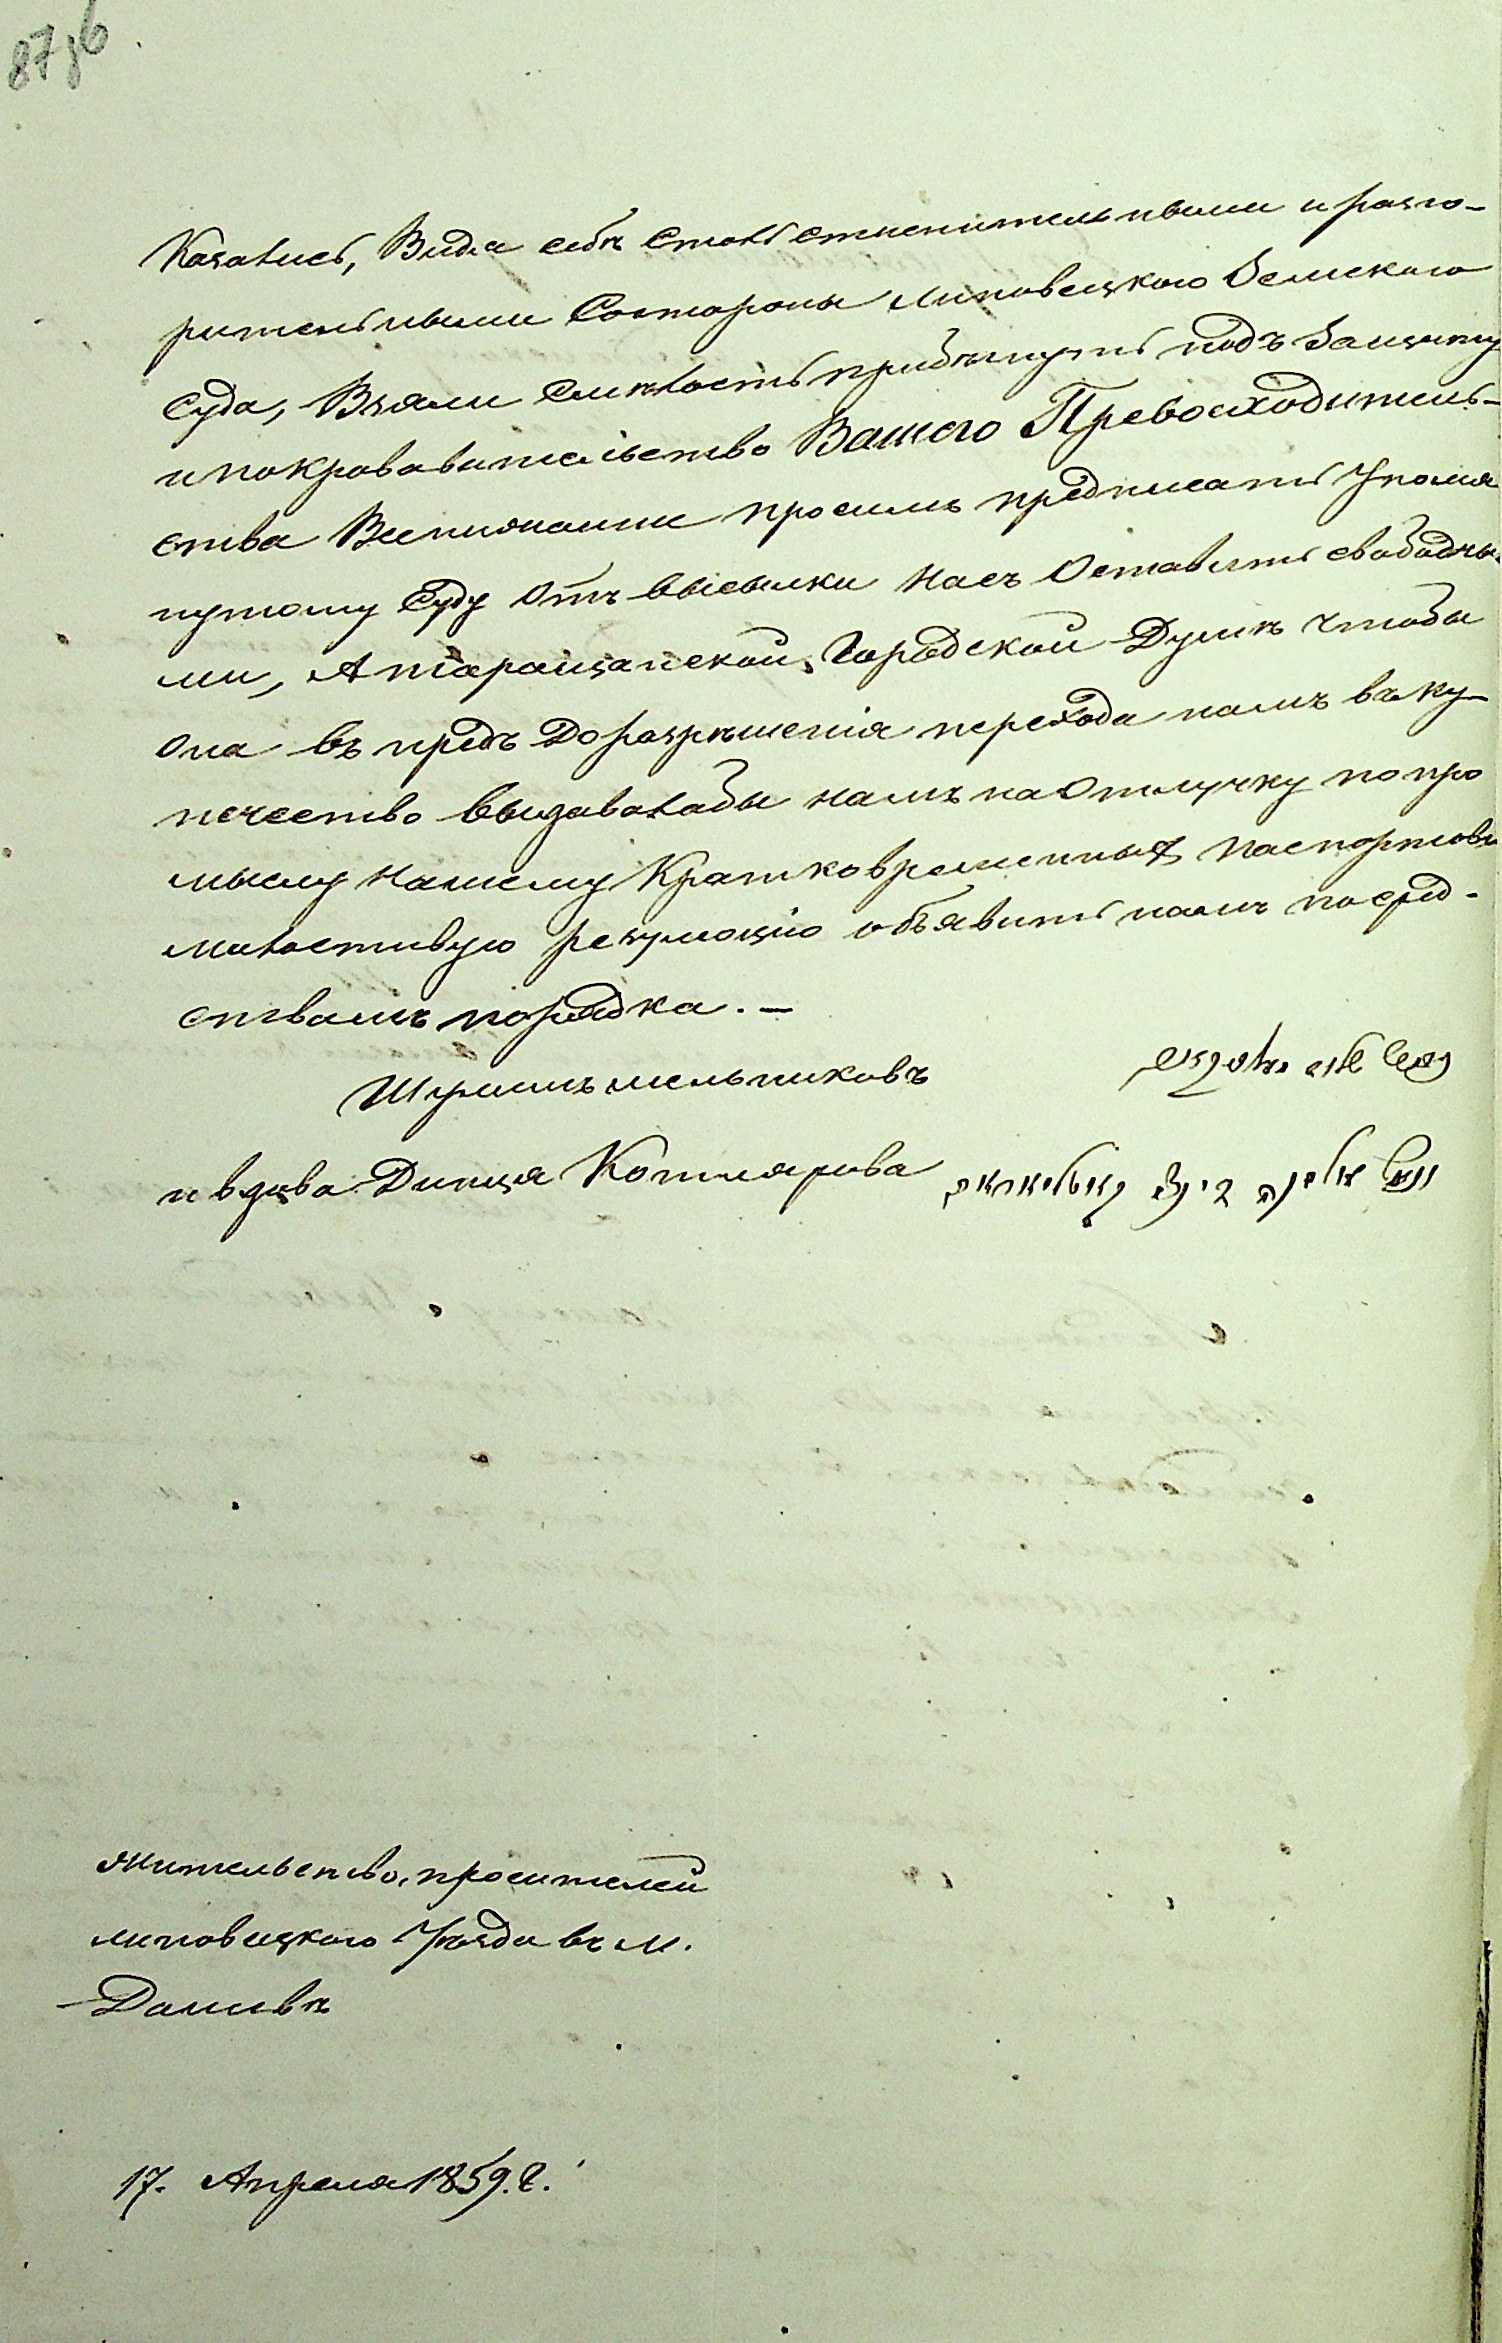 87 об
Казались, Видя себя столь стеснительными и разго-
рительными Состороны Липовецкого Земского
Суда, Взяли смѣлость прибѣгнуть подъ Защиту
и покрововительство Вашего Превосходитель-
ства Всепижайше просимъ предписать Упомя
нутому Суду Отъ высылки насъ Оставить свободны-
ми, А таращанской Городской Думѣ чтобы
Она въ предъ До разрѣшенія перехода намъ въ ку-
печество выдавалабы намъ на Отлучку по про
мыслу нашему Кратковременныя паспортовъ
милостивую резулюцію объявить намъ посред-
ствамъ порядка. —
Шулимъ мельниковъ
и вдова Динця Котлярова
Жительство, просителей
липовецкого Уѣзда въ м.
Дашевѣ
17. Апреля 1859. г.